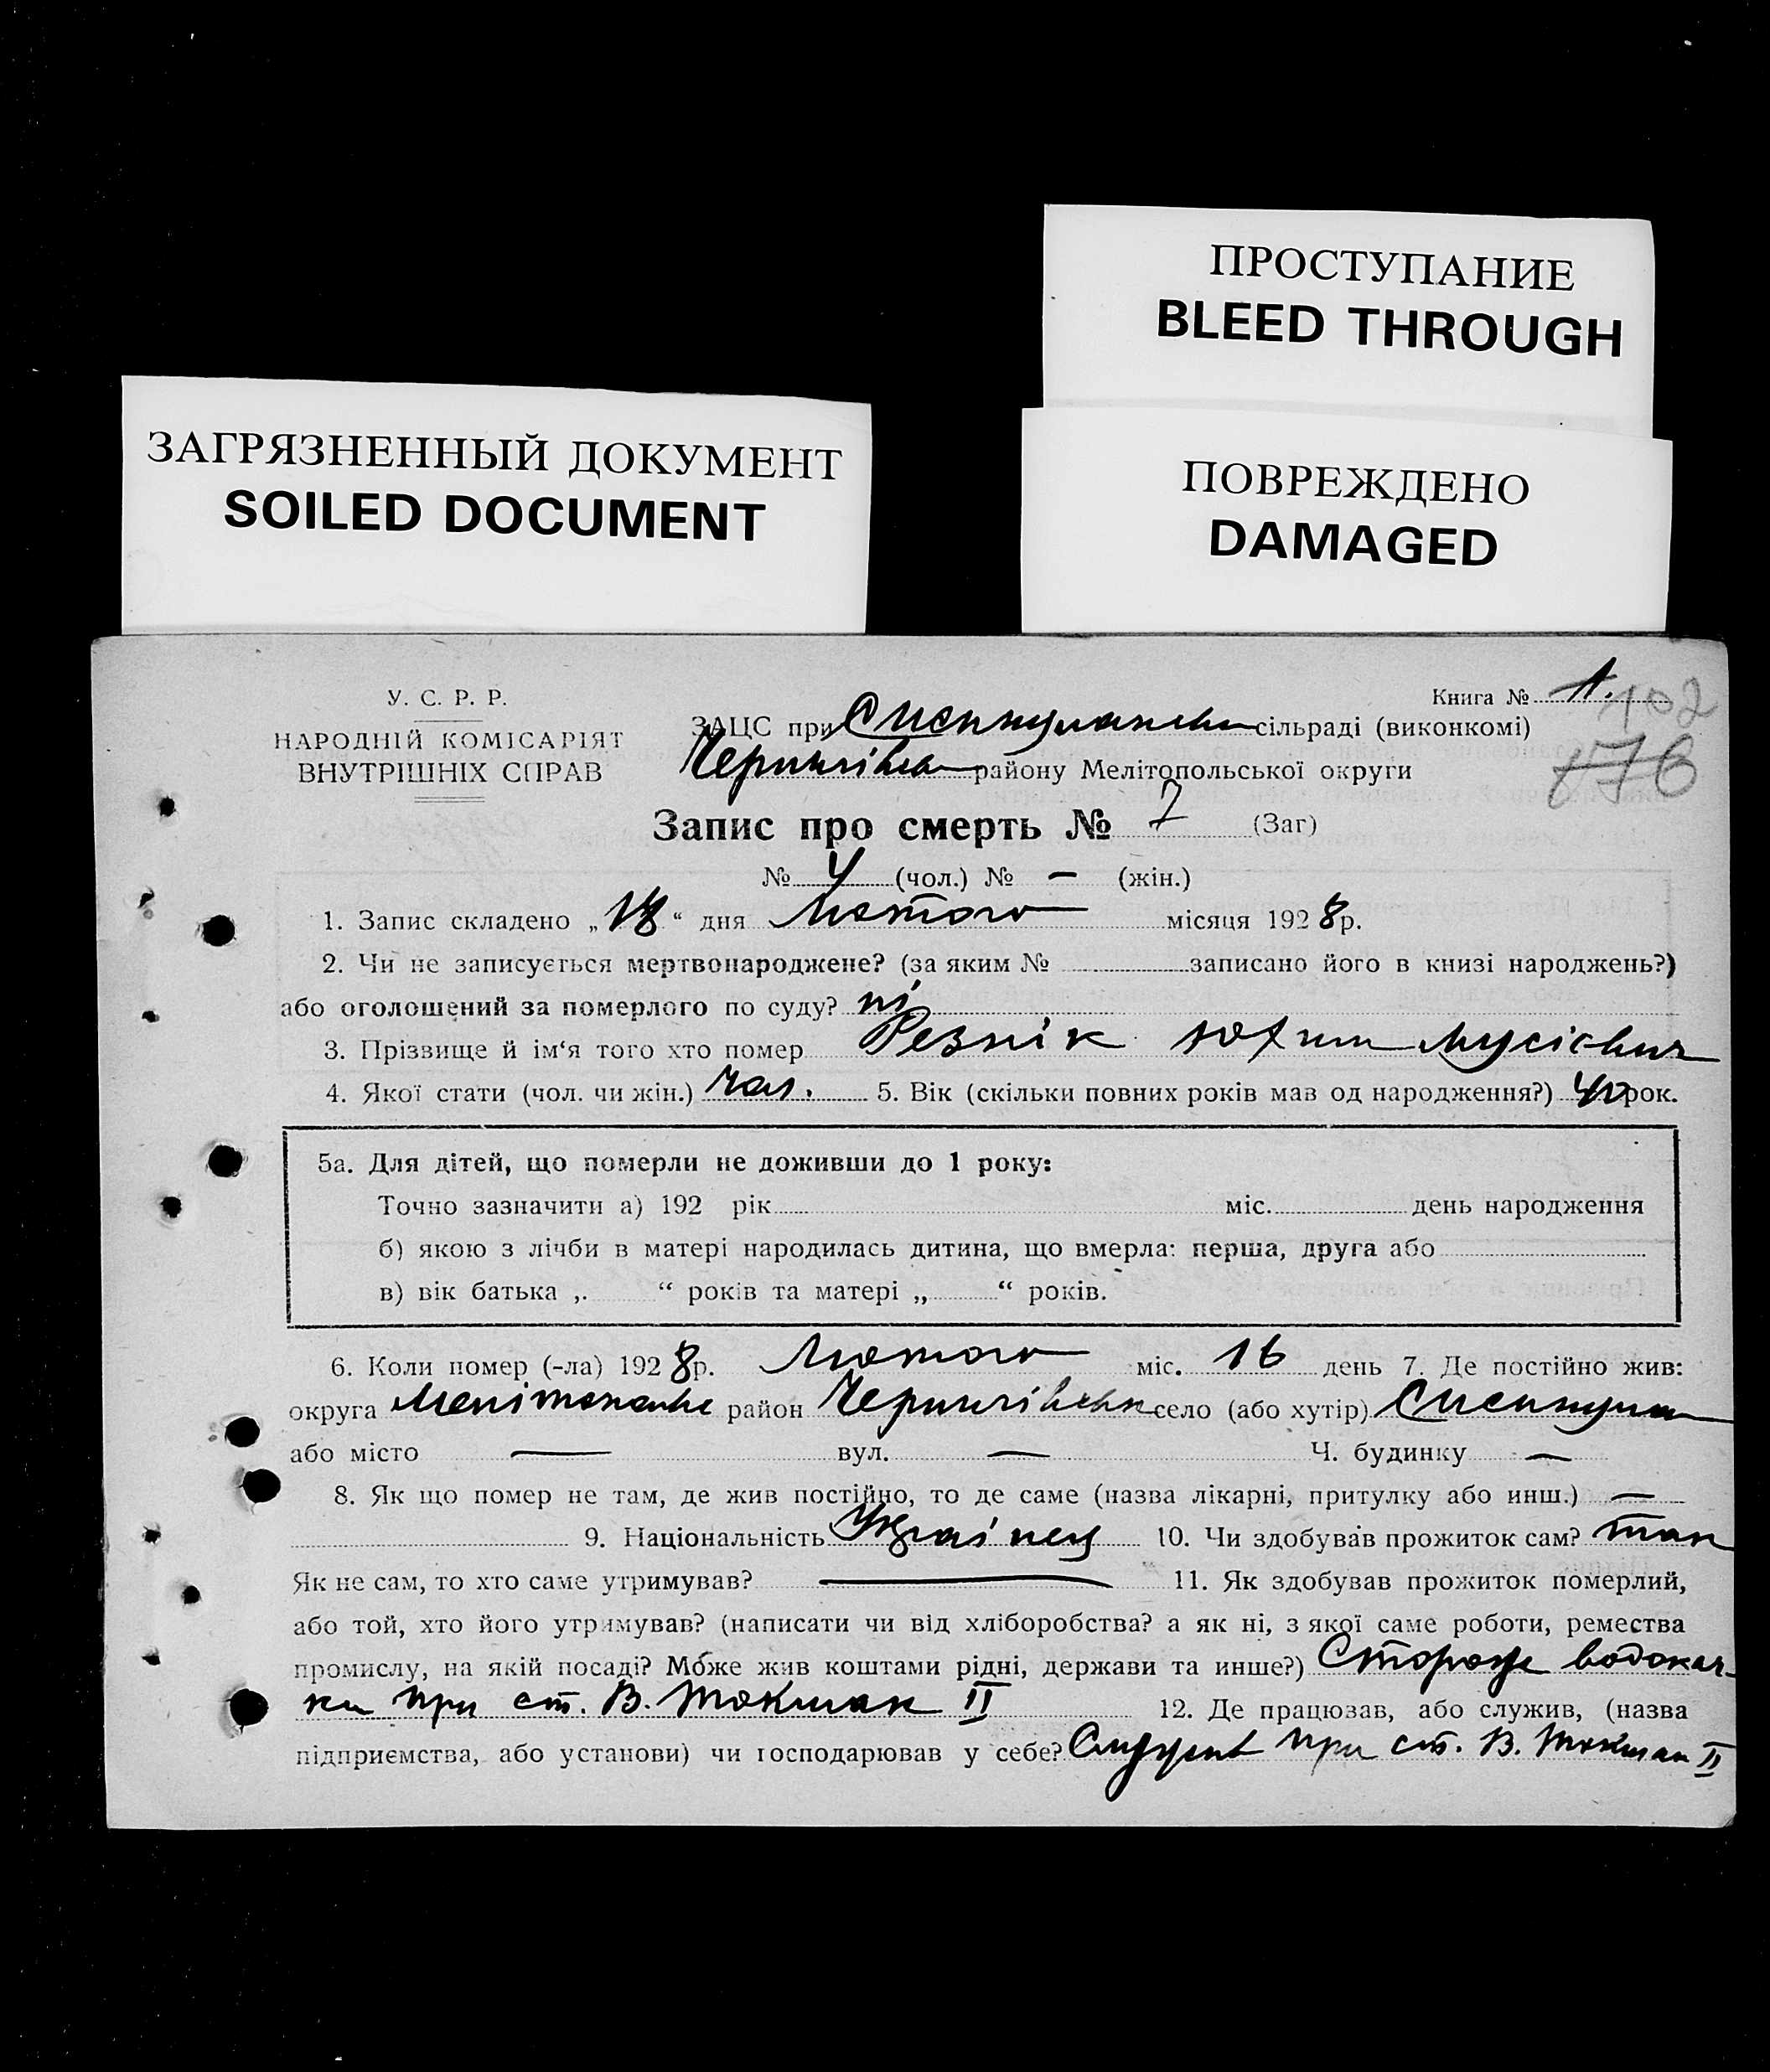 ПРОСТУПАНИЕ
BLEED THROUGH
ЗАГРЯЗНЕННЫЙ ДОКУМЕНТ
SOILED DOCUMENT
ПОВРЕЖДЕНО
DAMAGED
Книга № 1.
102
176
У. С. Р. Р.
НАРОДНІЙ КОМІСАРІЯТ
ВНУТРІШНІХ СПРАВ
ЗАЦС при сільраді (виконкомі)
району Мелітопольської округи
Запис про смерть № 7 (Заг)
№ 4 (чол.) № — (жін.)
1. Запис складено „ “ дня Лютого місяця 1928р.
2. Чи не записується мертвонароджене? (за яким № записано його в книзі народжень?)
або оголошений за померлого по суду? ні
3. Прізвище й ім‘я того хто помер Резнік Юхим Мусієвич
4. Якої стати (чол. чи жін.) чол. 5. Вік (скільки повних років мав од народження?) рок.
5а. Для дітей, що померли не доживши до 1 року:
Точно зазначити а) 192 рік міс. день народження
б) якою з лічби в матері народилась дитина, що вмерла: перша, друга або
в) вік батька „ “ років та матері „ “ років.
6. Коли помер (-ла) 1928р. Лютого міс. 16 день 7. Де постійно жив:
округа район село (або хутір)
або місто — вул. — Ч. будинку —
8. Як що помер не там, де жив постійно, то де саме (назва лікарні, притулку або инш.) —
9. Національність Українец 10. Чи здобував прожиток сам? так
Як не сам, то хто саме утримував? — 11. Як здобував прожиток померлий,
або той, хто його утримував? (написати чи від хліборобства? а як ні, з якої саме роботи, ремества
промислу, на якій посаді? Може жив коштами рідні, держави та инше?) Сторож водокач-
ки при ст. В. Токмак II 12. Де працював, або служив, (назва
підприємства, або установи) чи господарював у себе? при ст. В. Токмак II